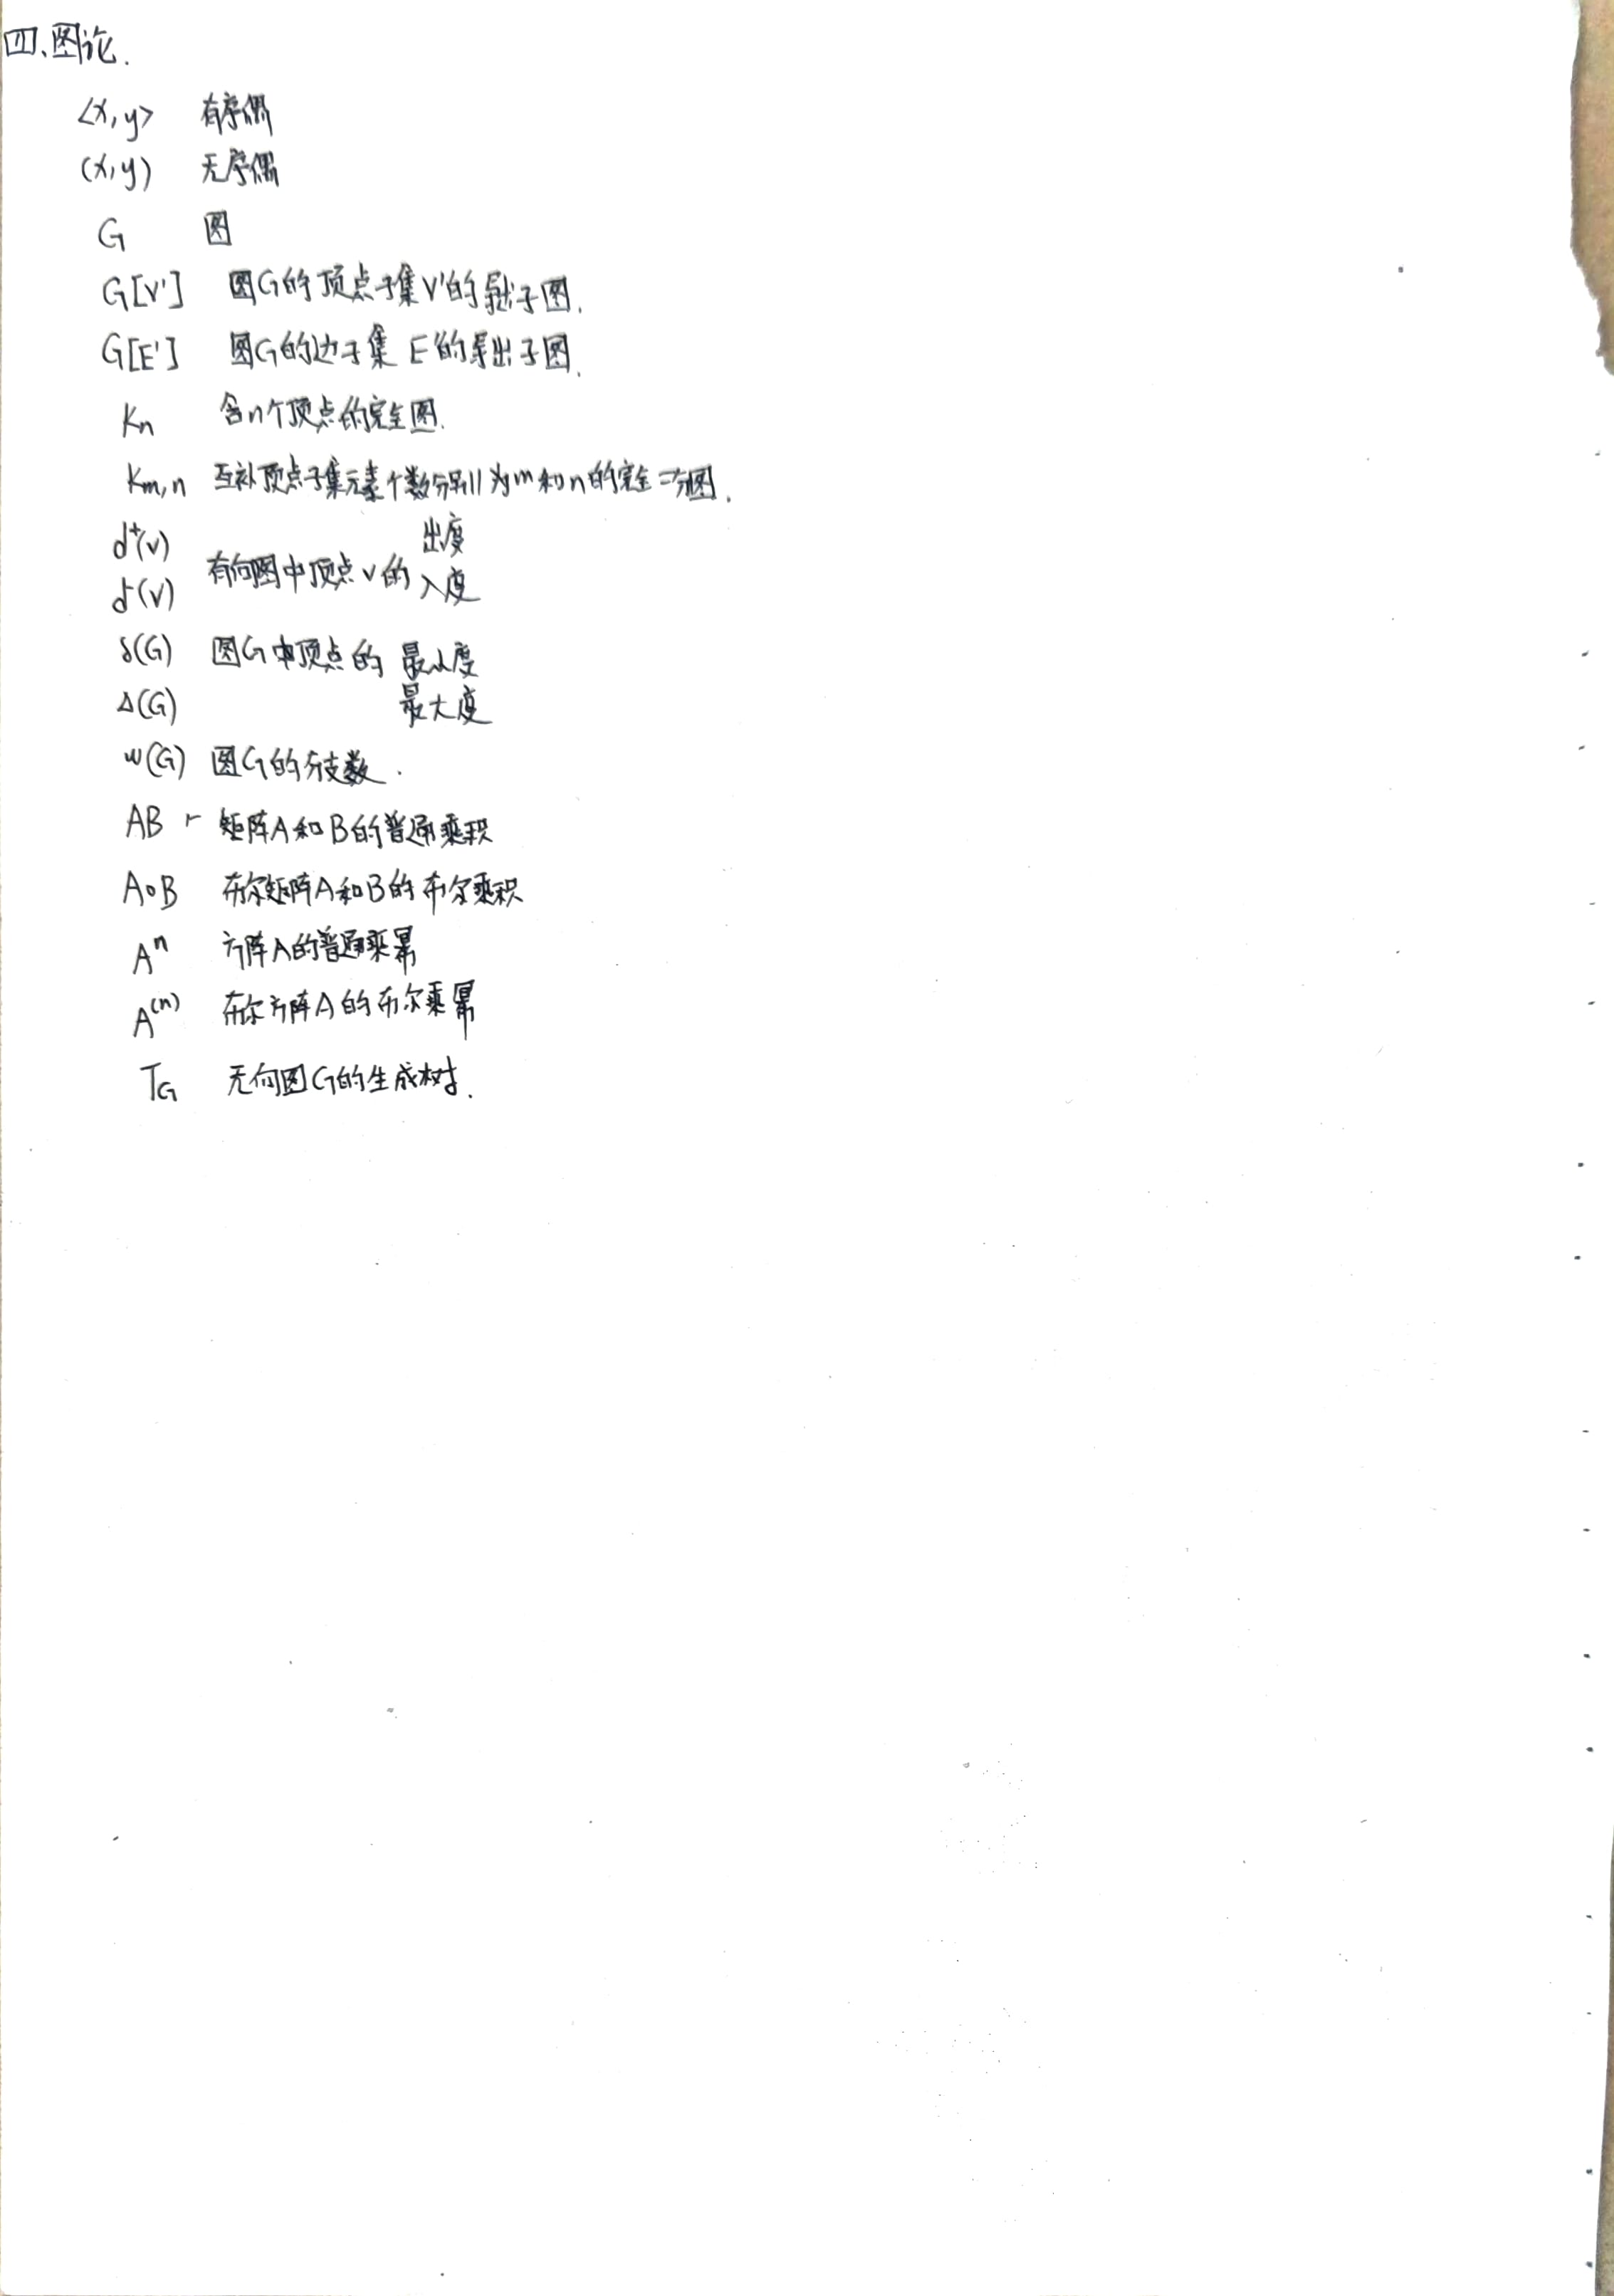 四、图论.
<x,y> 有序偶
(x,y) 无序偶
G 图
G[V'] 图G的顶点子集V'的导出子图.
G[E'] 图G的边子集E'的导出子图.
Kn 含n个顶点的完全图.
Km,n 互补顶点子集元素个数分别为m和n的完全二分图.
d⁺(v) 出度
有向图中顶点v的
d⁻(v) 入度
δ(G) 图G中顶点的 最小度
Δ(G) 最大度
w(G) 图G的分支数.
AB 矩阵A和B的普通乘积
A∘B 布尔矩阵A和B的布尔乘积
Aⁿ 方阵A的普通乘幂
A⁽ⁿ⁾ 布尔方阵A的布尔乘幂
TG 无向图G的生成树.